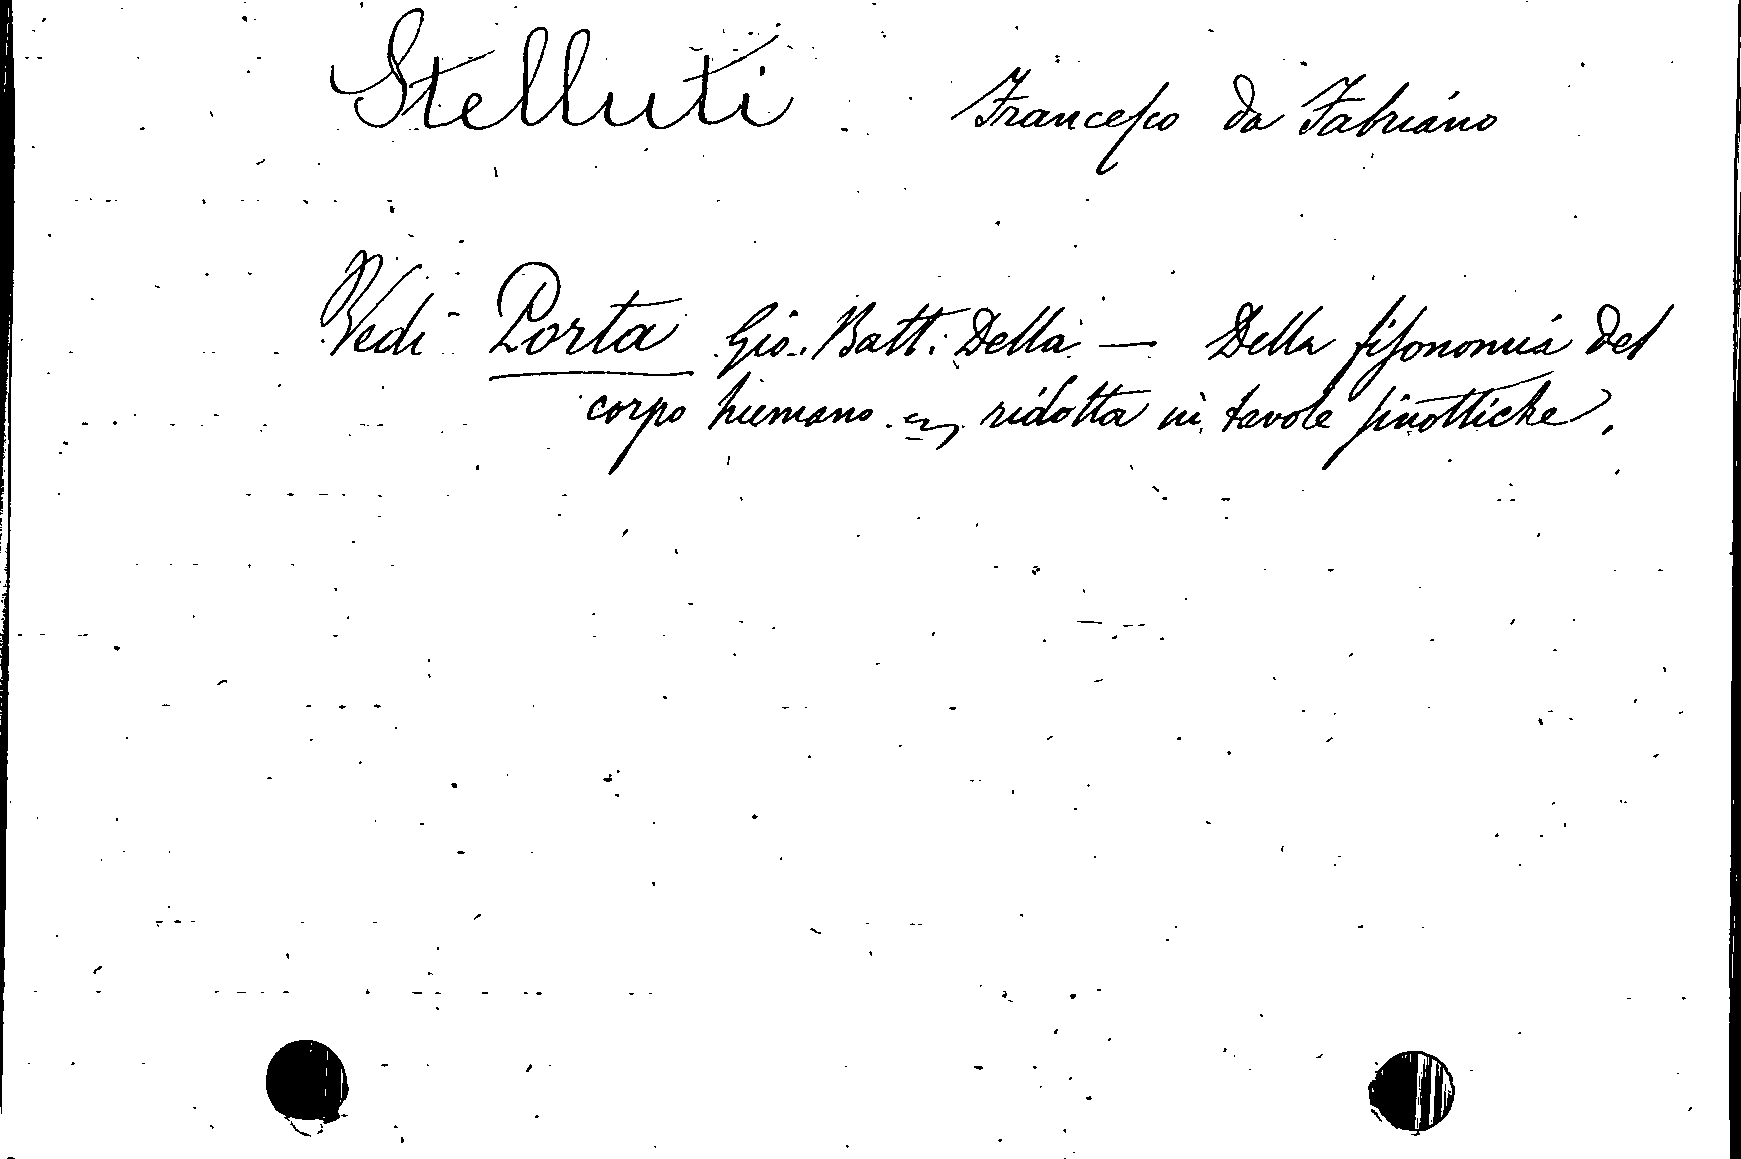 Stelluti Francesco da Fabriano
Vedi Porta Gio. Batt. Della — Della fisonomia del
corpo humano ridotta in tavole sinottiche.